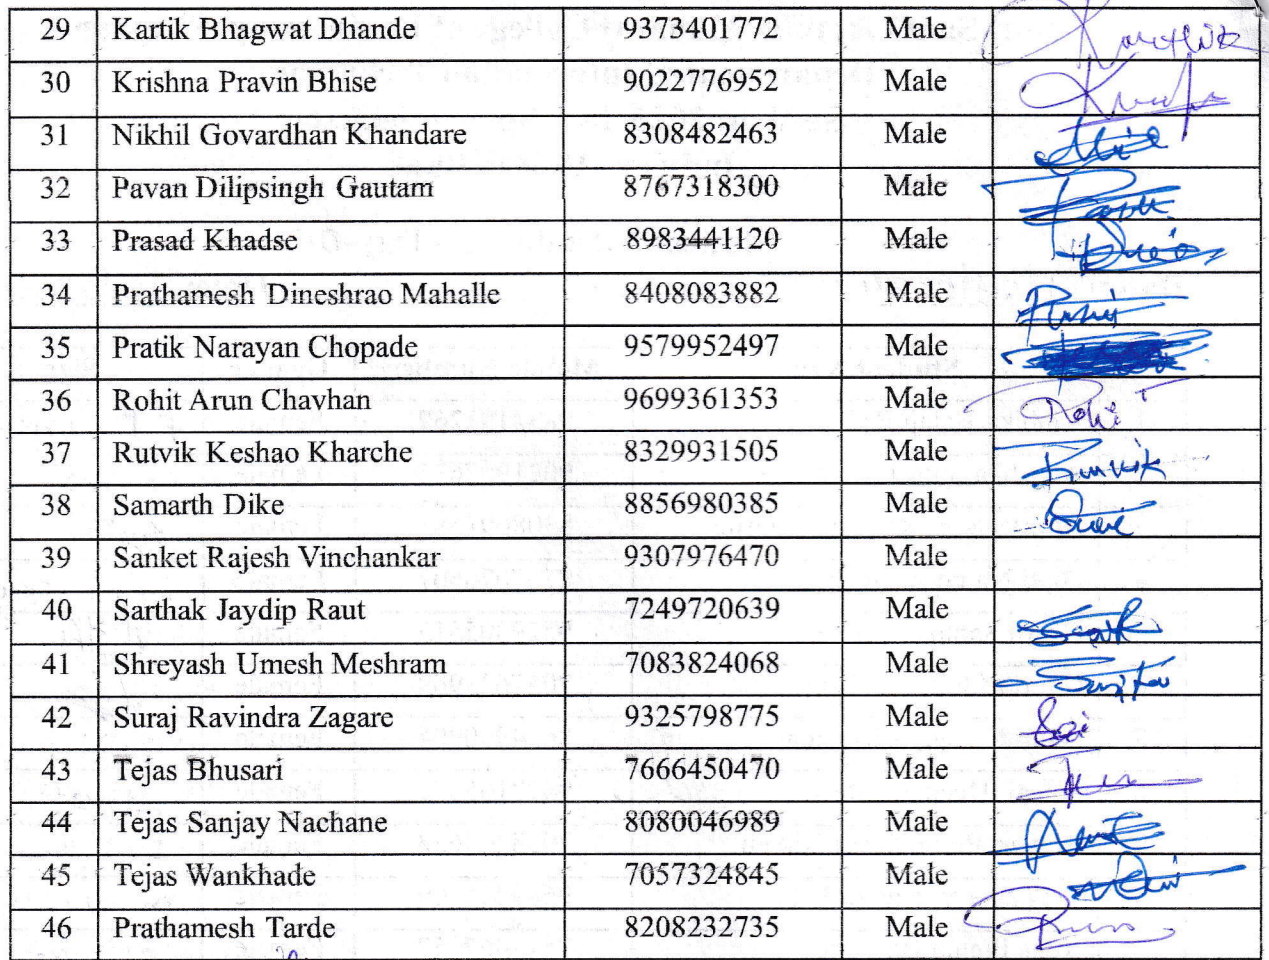 29 Kartik Bhagwat Dhande 9373401772 Male Karthik
30 Krishna Pravin Bhise 9022776952 Male
31 Nikhil Govardhan Khandare 8308482463 Male
32 Pavan Dilipsingh Gautam 8767318300 Male
33 Prasad Khadse 8983441120 Male
34 Prathamesh Dineshrao Mahalle 8408083882 Male
35 Pratik Narayan Chopade 9579952497 Male
36 Rohit Arun Chavhan 9699361353 Male Rohit
37 Rutvik Keshao Kharche 8329931505 Male
38 Samarth Dike 8856980385 Male
39 Sanket Rajesh Vinchankar 9307976470 Male
40 Sarthak Jaydip Raut 7249720639 Male
41 Shreyash Umesh Meshram 7083824068 Male
42 Suraj Ravindra Zagare 9325798775 Male
43 Tejas Bhusari 7666450470 Male
44 Tejas Sanjay Nachane 8080046989 Male
45 Tejas Wankhade 7057324845 Male
46 Prathamesh Tarde 8208232735 Male